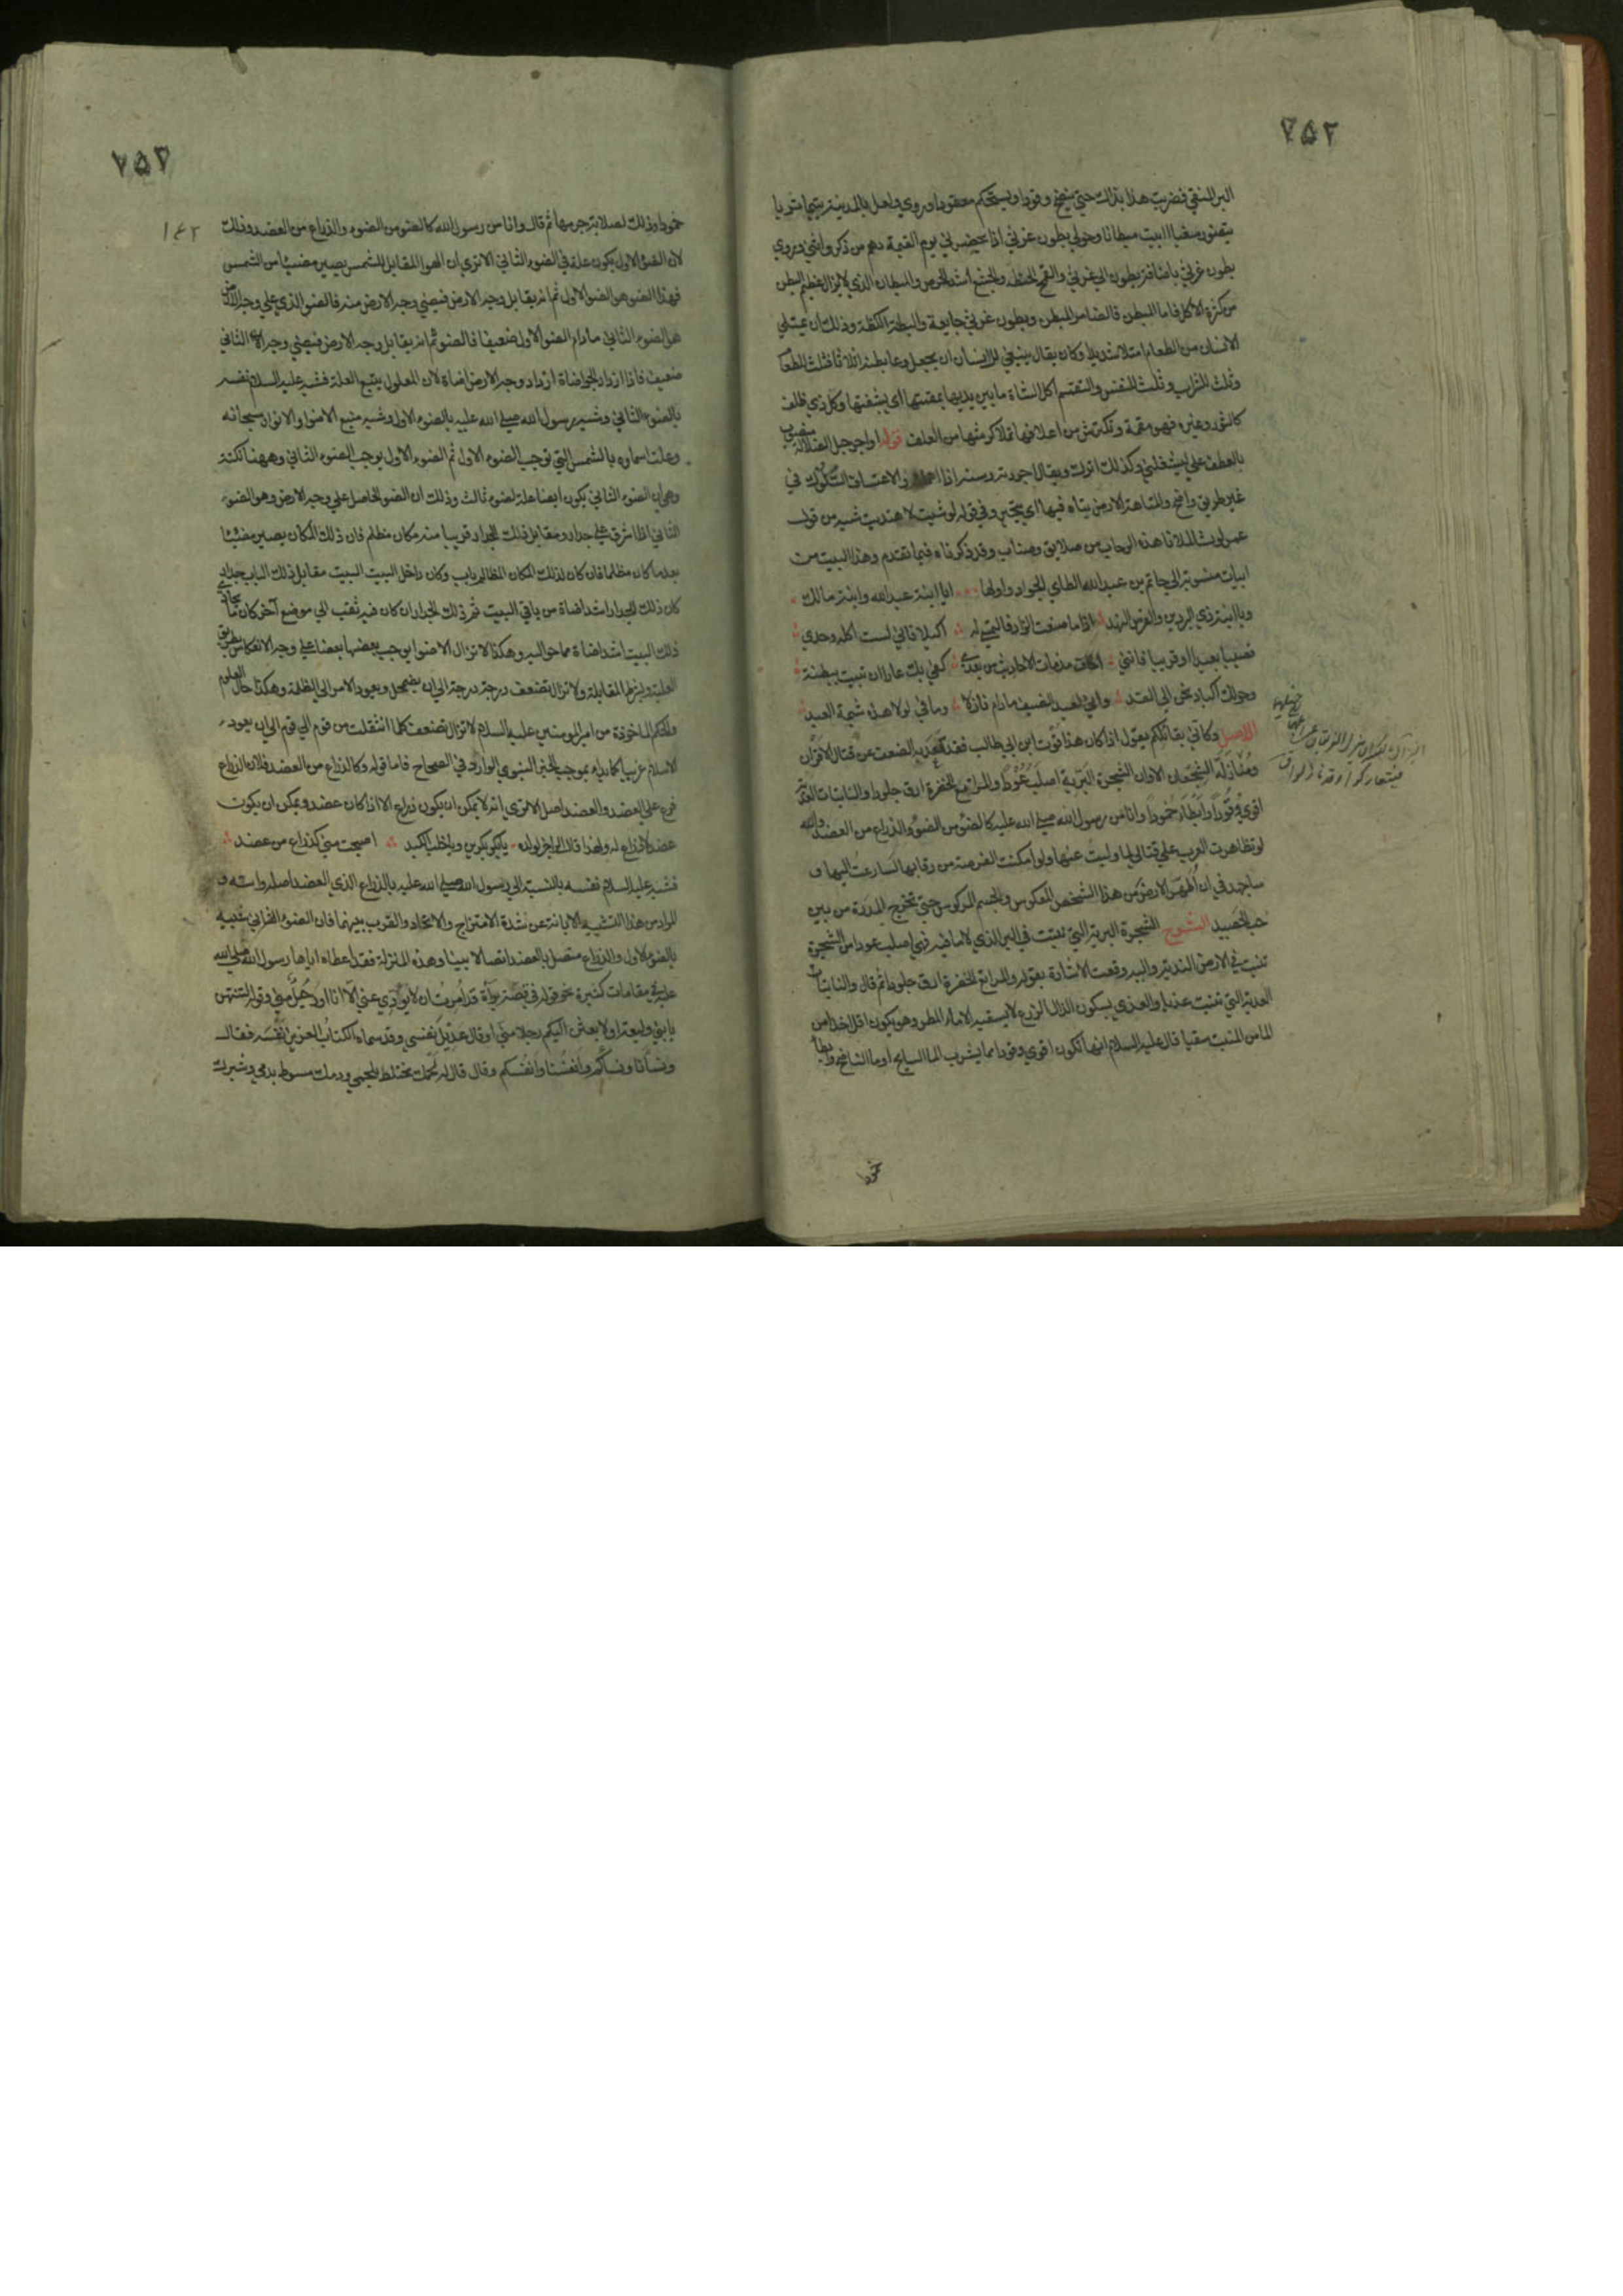 ٢٥٢
البر المنقي فضربت هذا بذلك حتى ينضج وقودا ويستحكم معقودا وروي ولعل بالمدينة يتيما تربا
يتضور سغبا اابيت مبطانا وحولي بطون غرثى اذا يحضرني يوم القيمة وهم من ذكر وانثى وروي
بطون غرثي باضافة بطون الي غرثي والقمح الحنطة والجشع اشد الحرص والمبطان الذي لا يزال عظيم البطن
من كثرة الاكل فاما المبطن فالضامر البطن وبطون غرثي جايعة والبطنة الكظة وذلك ان يمتلي
الانسان من الطعام امتلا شديدا وكان يقال ينبغي للانسان ان يجعل وعا بطنه اثلاثا فثلث للطعا
وثلث للشراب وثلث للنفس والتقمم اكل الشاة ما بين يديها بمقمتها اي بشفتها وكل ذي ظلف
كالثور وغيره فهو مقمة وتكترش من اعلافها تملا كرشها من العلف قوله او اجر حبل الضلالة منصوب
بالعطف علي يشغلني وكذلك اترك ويقال اجررته رسنه اذا اهملته والاعتساف السلوك في
غير طريق واضح والمتاهة الارض يتاه فيها اي يتحير وفي قوله لو شيت لاهتديت شبه من قول
عمر لو شئت لملات هذه الرحاب من صلايق وصناب وقد ذكرناه فيما تقدم وهذا البيت من
ابيات منسوبة الي حاتم بن عبد الله الطاي الجواد واولها ايا ابنة عبد الله وابنة مالك
ويا ابنة ذي البردين والفرس النهد اذا ما صنعت الزاد فالتمسي له اكيلا فاني لست اكله وحدي
قصيا بعيدا او قريبا فانني اخاف مذمات الاحاديث من بعدي كفي بك عارا ان تبيت ببطنة
وحولك اكباد تحن الي القد واني لعبد الضيف ما دام نازلا وما في لولا هذه شيمة العبد
الاصل وكاني بقائلكم يقول اذا كان هذا قوت ابن ابي طالب فقد قعد به الضعف عن قتال الاقران
ومنازلة الشجعان الا وان الشجرة البرية اصلب عودا والمراتع الخضرة ارق جلودا والنابتات العذية
اقوي وقودا وابطا خمودا وانا من رسول الله صلى الله عليه كالضوء من الضوء والذراع من العضد والله
لو تظاهرت العرب علي قتالي لما وليت عنها ولو امكنت الفرصة من رقابها لسارعت اليها و
ساجهد في ان اطهر الارض من هذا الشخص المعكوس والجسم المركوس حتى تخرج المدرة من بين
حب الحصيد الشرح الشجرة البرية التي تنبت في البر الذي لا ماء فيه فهي اصلب عودا من الشجرة
تنبت في الارض الندية واليه وقعت الاشارة بقوله والمراتع الخضرة ارق جلودا ثم قال والنابتات
العذية التي تنبت عذيا والعذي بسكون الذال الزرع لا يسقيه الا ماء المطر وهو يكون اقل اخذا من
الماء من المنبت سقيا قال عليه السلام انها تكون اقوي وقودا مما يشرب الماء السايح او ماء الناضح وابطأ
خمودا
٢٥٣
١٤٢
خمودا وذلك لصلابة جرمها ثم قال وانا من رسول الله كالضوء من الضوء والذراع من العضد وذلك
لان الضوء الاول يكون علة في الضوء الثاني الا تري ان الهوا المقابل للشمس يصير مضيئا من الشمس
فهذا الضوء هو الضوء الاول ثم انه يقابل وجه الارض فيضيء وجه الارض منه فالضوء الذي علي وجه الارض
هو الضوء الثاني وما دام الضوء الاول ضعيفا فالضوء ثم انه يقابل وجه الارض فيضيء وجه الارض الثاني
ضعيف فاذا ازداد الجو اضاة ازداد وجه الارض اضاة لان المعلول يتبع العلة فشبه عليه السلام نفسه
بالضوء الثاني وشبه رسول الله صلى الله عليه بالضوء الاول وشبه منبع الاضواء والانوار سبحانه
وعلت اسماوه بالشمس التي توجب الضوء الاول ثم الضوء الاول يوجب الضوء الثاني وههنا نكتة
وهي ان الضوء الثاني يكون ايضا علة لضوء ثالث وذلك ان الضوء الحاصل علي وجه الارض وهو الضوء
الثاني اذا اشرق علي جدار ومقابل ذلك الجدار قريبا منه مكان مظلم فان ذلك المكان يصير مضيئا
بعد ما كان مظلما فان كان لذلك المكان المظلم باب وكان داخل البيت البيت مقابل ذلك الباب جدار
كان ذلك الجدار اشد اضاة من باقي البيت ثم ذلك الجدار ان كان فيه ثقب الي موضع آخر كان ما يحاذي
ذلك البيت اشد اضاة مما حواليه وهكذا لا تزال الاضواء يوجب بعضها بعضا علي وجه الانعكاس بطريق
العلية وبشرط المقابلة ولا تزال تضعف درجة درجة الي ان يضمحل ويعود الامر الي الظلمة وهكذا حال العلوم
والحكم الماخوذة من امير المومنين عليه السلام لا تزال تضعف كلما انتقلت من قوم الي قوم الي ان يعود
الاسلام غريبا كما بدا بموجب الخبر النبوي الوارد في الصحاح فاما قوله وكالذراع من العضد فلان الذراع
فرع علي العضد والعضد اصل الا تري انه لا يمكن ان يكون ذراع الا اذا كان عضد ويمكن ان يكون
عضد لا ذراع له ولهذا قال الراجز لولده يا بكر بكرين ويا خلب الكبد اصبحت مني كذراع من عضد
فشبه عليه السلام نفسه بالنسبة الي رسول الله صلى الله عليه بالذراع الذي العضد اصله واسه و
المراد من هذا التشبيه الابانة عن شدة الامتزاج والاتحاد والقرب بينهما فان الضوء الثاني شبيه
بالضوء الاول والذراع متصل بالعضد اتصالا بينا وهذه المنزلة قد اعطاه اياها رسول الله صلى الله
عليه في مقامات كثيرة نحو قوله في قصة برآءة قد امرت ان لا يؤدي عني الا انا او رجل مني وقوله لتنتهن
يا بني وليعة او لابعثن اليكم رجلا مني او قال عديل نفسي وقد سماه الكتاب العزيز نفسه فقال
ونساءنا ونساءكم وانفسنا وانفسكم وقال قال له لحمك مختلط بلحمي ودمك مسوط بدمي وشبرك